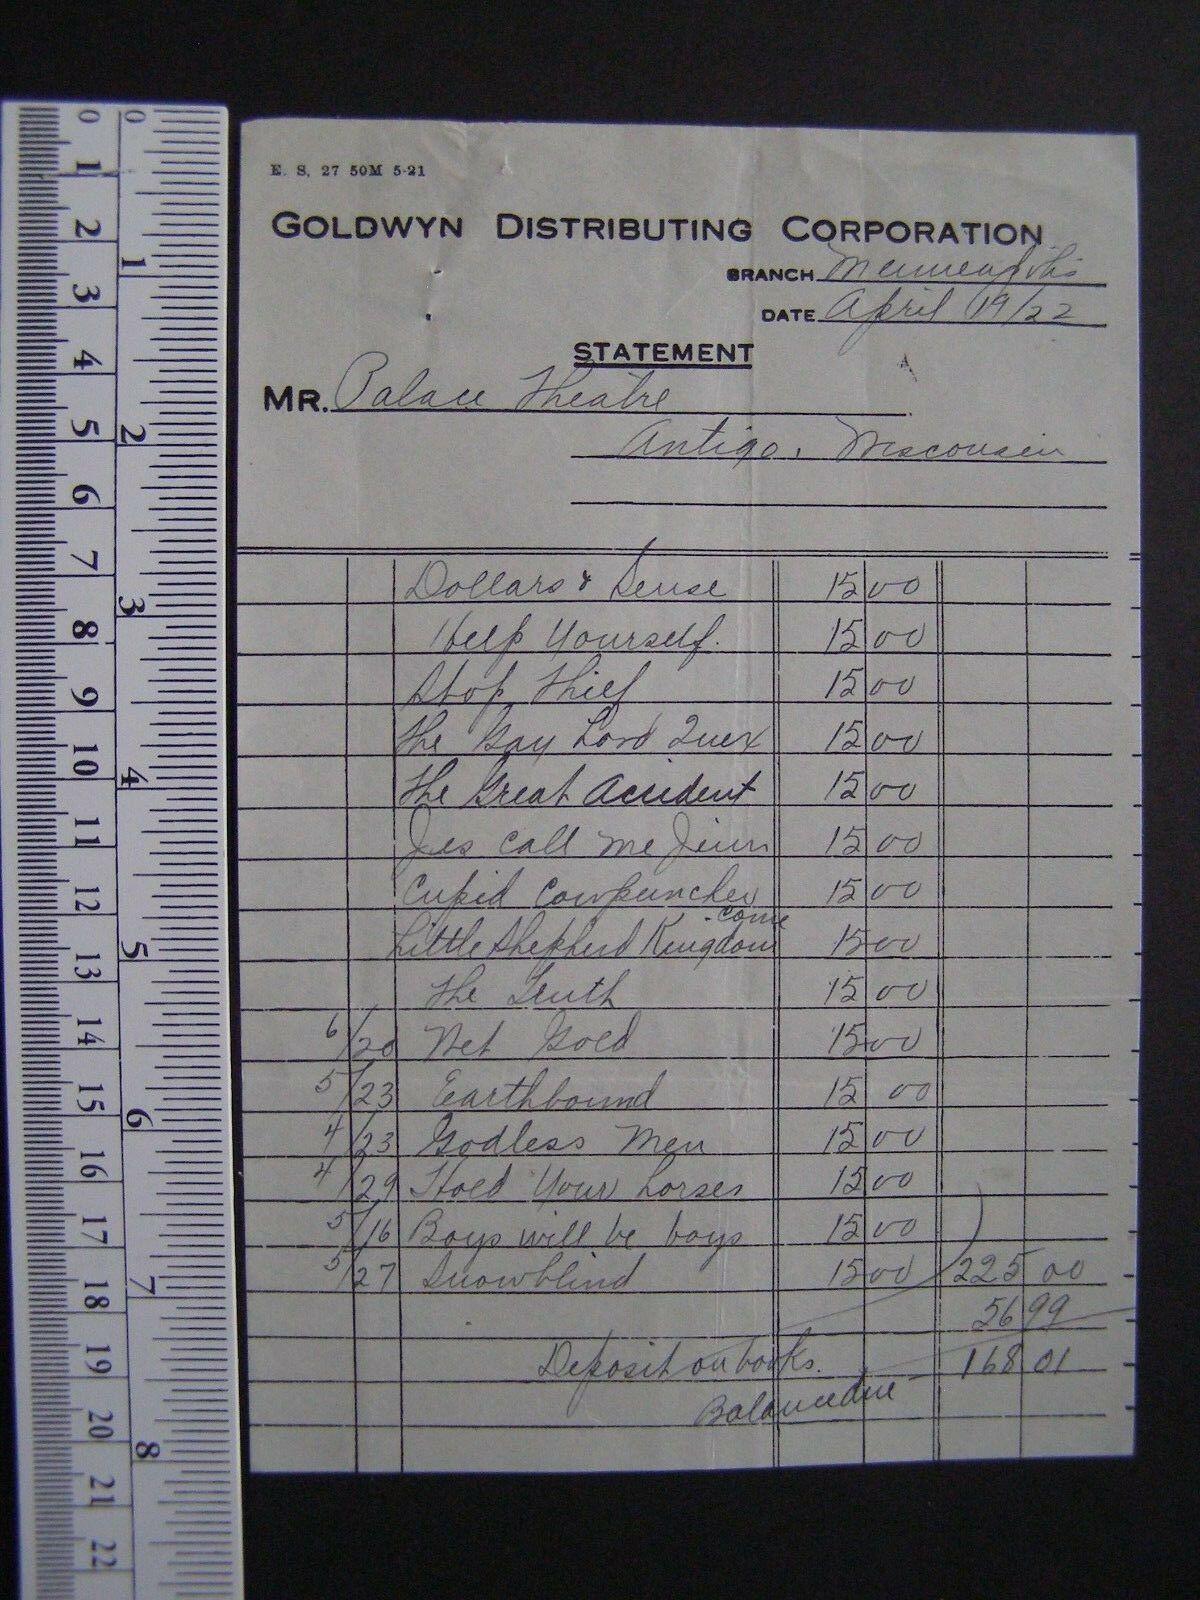 E. S. 27 50M 5-21
GOLDWYN DISTRIBUTING CORPORATION
BRANCH Minneapolis
DATE April 19/22
STATEMENT
MR. Palace Theatre
Antigo, Wisconsin
Dollars & Sense 15 00
Help Yourself. 15 00
Stop Thief 15 00
The Gay Lord Quex 15 00
The Great Accident 15 00
Jes Call me Jim 15 00
Cupid Cowpuncher 15 00
Little Shepherd Kingdom come 15 00
The Truth 15 00
6/20 Wet Gold 15 00
5/23 Earthbound 15 00
4/23 Godless Men 15 00
4/29 Hold Your horses 15 00
5/16 Boys will be boys 15 00
5/27 Snowblind 15 00 225 00
56 99
Deposit on books. 168 01
Balance due
0 1 2 3 4 5 6 7 8 9 10 11 12 13 14 15 16 17 18 19 20 21 22
0 1 2 3 4 5 6 7 8